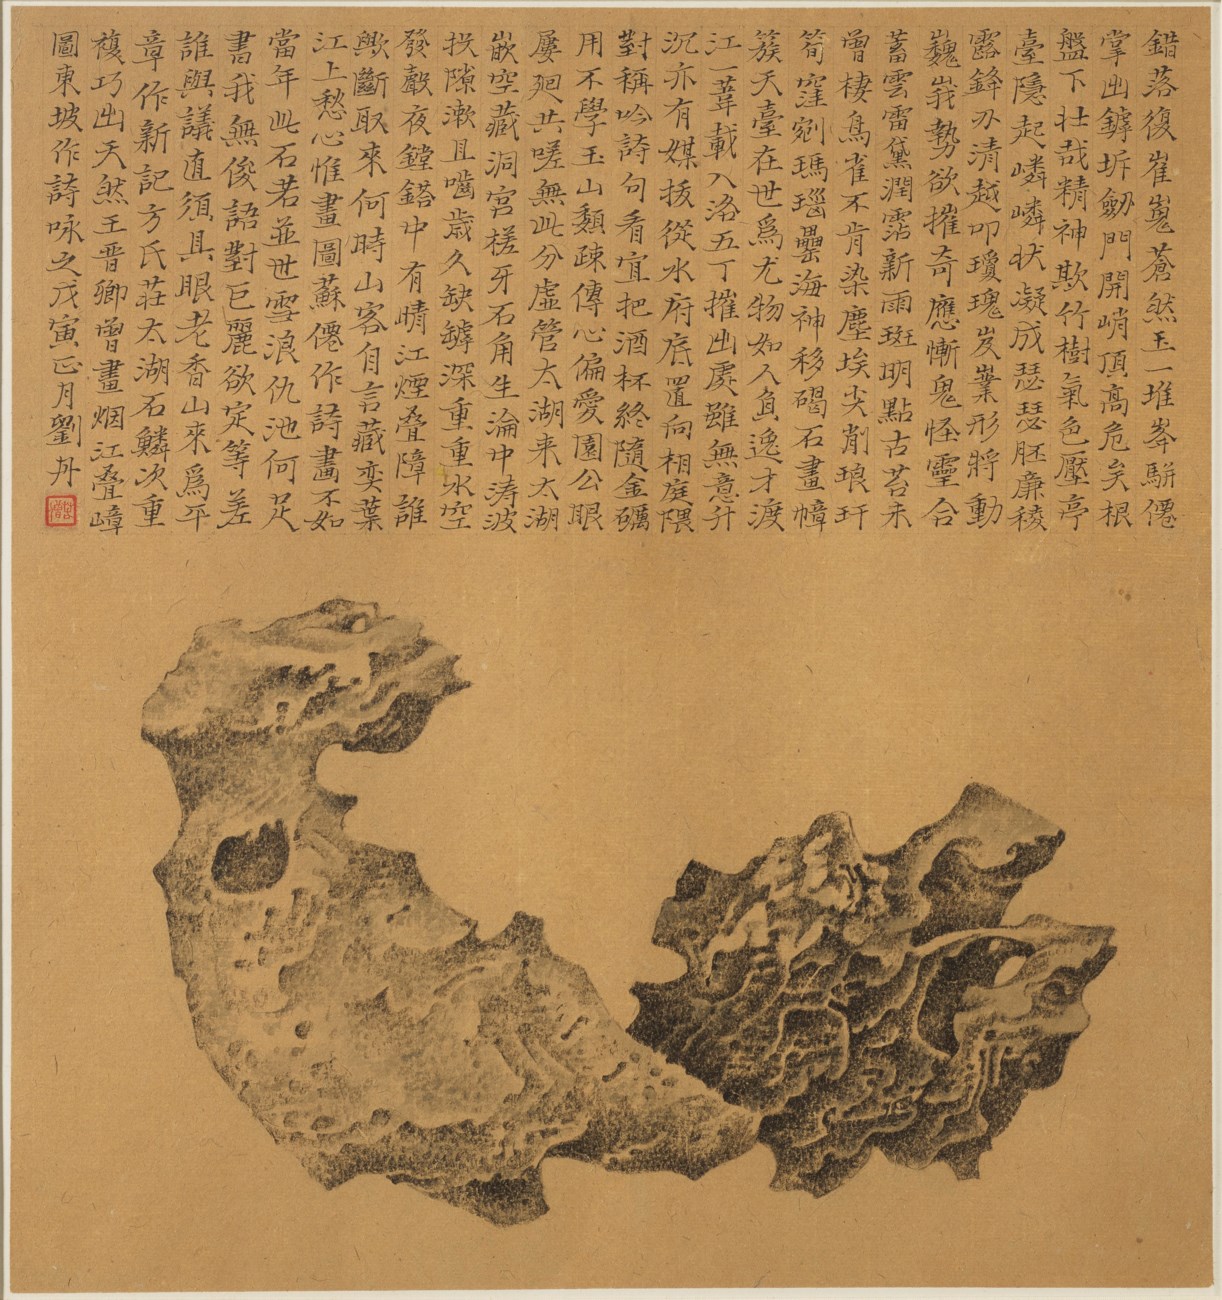 錯落復崔嵬蒼然玉一堆峯駢僊
掌出罅坼劒門開峭頂高危矣根
盤下壮哉精神欺竹樹氣色壓亭
臺隱起嶙嶙狀凝成瑟瑟胚廉稜
露鋒刃清越叩瓊瑰岌嶪形將動
巍峩勢欲摧奇應慚鬼怪靈合
蓄雲雷黛潤霑新雨斑明點古苔未
曾棲鳥雀不肯染塵埃尖削琅玕
筍窪剜瑪瑙罍海神移碣石畫幛
簇天臺在世爲尤物如人負逸才渡
江一葦載入洛五丁摧出處雖無意升
沉亦有媒拔從水府底置向相庭隈
對稱吟詩句看宜把酒杯終隨金礪
用不學玉山頹疎傳心偏愛園公眼
屢廻共嗟無此分虛管太湖来太湖
嵌空藏洞宮槎牙石角生淪中涛波
投隙漱且嚙歲久缺罅深重重水空
發聲夜鏜鎝中有晴江煙叠障誰
歟斷取來何時山客自言藏奕葉
江上愁心惟畫圖蘇僊作詩畫不如
當年此石若並世雪浪仇池何足
書我無俊語對巨麗欲定等差
誰與議直須具眼老香山來爲平
章作新記方氏莊太湖石鱗次重
複巧出天然王晋卿曾畫烟江叠嶂
圖東坡作詩咏之戊寅正月劉丹